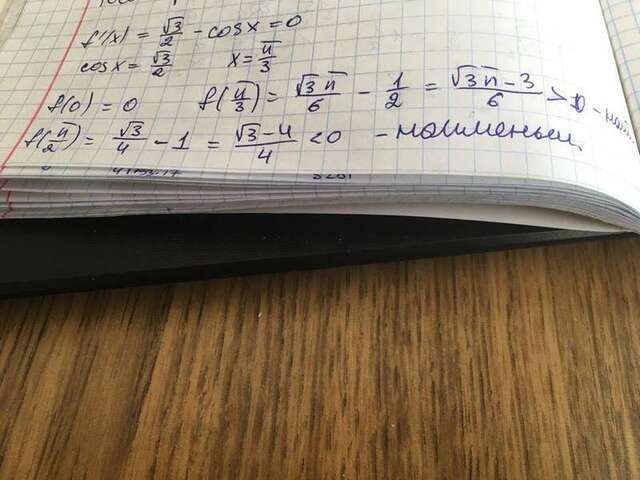 f'(x) = √3/2 - cosx = 0
cosx = √3/2 x = π/3
f(0) = 0 f(π/3) = √3π/6 - 1/2 = (√3π - 3)/6 > 0 -
f(π/2) = √3/4 - 1 = (√3-4)/4 < 0 - наименьш.